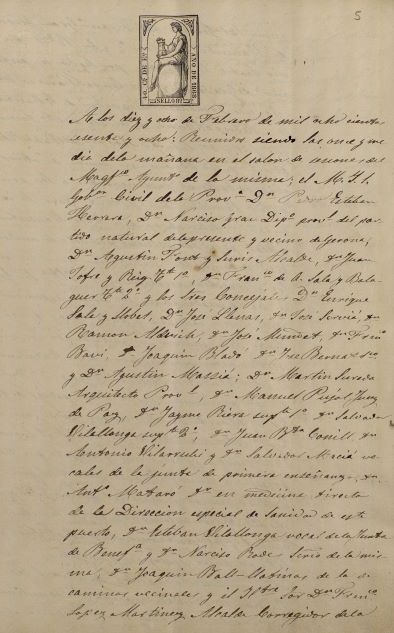 5
AÑO DE 1868
SELLO 9º
A los diez y ocho de Febrero de mil ocho cientos
sesenta y ocho: Reunidos siendo las once y me
dia de la mañana en el salon de sesiones del
Magfco Ayunto de la misma; el M. I. S.
Gobor Civil de la Prova Dn Esteban
Herrera, Dn Narciso Grau Dipo provl del par
tido natural de la presente y vecino de Gerona,
Dn Agustin Font y Alcalde, Dn Juan
Jofre y Roig Tte 1o, Dn Franco de A. Sala y Bala
guer Tte 2o y los Sres Concejales Dn Enrique
Sala y Llobet, Dn José Llenas, Dn José Serviá, Dn
Ramon Aldrich, Dn José Muñet, Dn
Dn Joaquin Bladó Dn José
y Dn Agustin Massiá; Dn Martin Sureda
Arquitecto Provl, Dn Manuel Pujol Juez
de Paz, Dn Jayme Riera supte 1o Dn Salvador
Vilallonga supte 2o, Dn Juan Bta Conill, Dn
Antonio Vilarrubi y Dn Salvador Maciá vo
cales de la junta de primera enseñanza, Dn
Anto Mataró Dr en medicina director
de la Direccion especial de Sanidad de este
puerto, Dn Esteban Vilallonga vocal de la Junta
de Benefa y Dn Narciso Srio de la mis
ma, Dn Joaquin de la de
caminos vecinales y il Sor Dn
Lopez Martinez Alcalde Corregidor de la